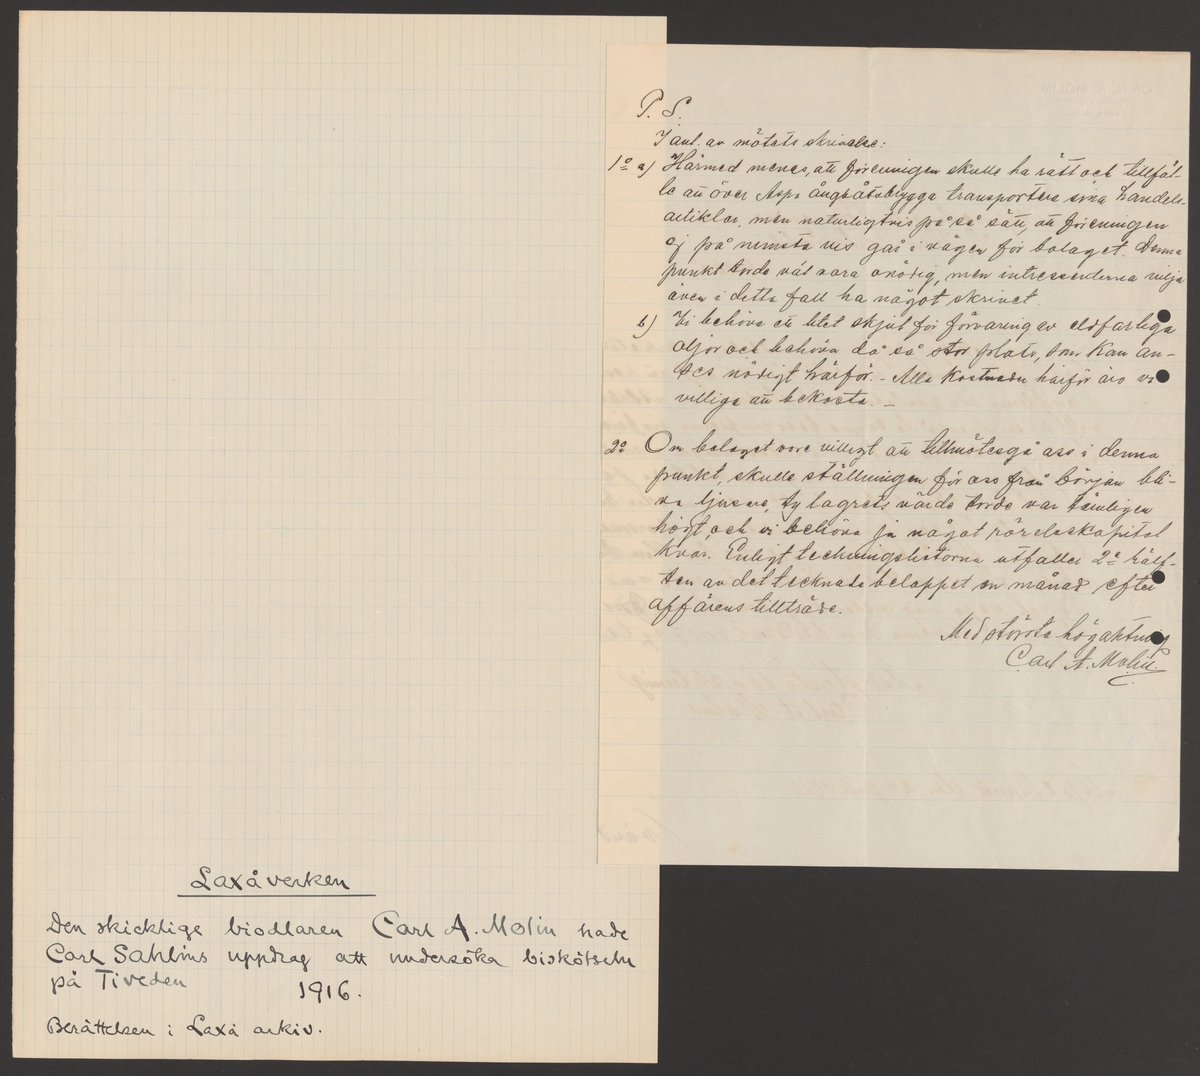 P. S.
I anl. av mötets skrivelse:
1º a) Härmed menes, att föreningen skulle ha rätt och tillfäl-
le att över Aspa ångbåtsbrygga transportera sina handels-
artiklar, men naturligtvis på så sätt, att föreningen
ej på minsta vis gås i vägen för bolaget. Denna
punkt torde väl vara onödig, men intressenterna vilja
även i detta fall ha något skrivet.
b) Vi behöva ett litet skjul för förvaring av eldfarliga
oljor och behöva då så stor plats, som kan an-
ses nödigt härför. - Alla kostnader härför äro vi
villiga att bekosta. -
2º Om bolaget vore villigt att tillmötesgå oss i denna
punkt, skulle ställningen för oss från början bli-
va ljusare, ty lagrets värde torde var tämligen
högt, och vi behöva ju något rörelsekapital
kvar. Enligt teckningslistorna utfaller 2º hälf-
ten av det tecknade beloppet en månad efter
affärens tillträde.
Med största högaktning
Carl A. Molin.
Laxåverken
Den skicklige biodlaren Carl A. Molin hade
Carl Sahlins uppdrag att undersöka biskötseln
på Tiveden 1916.
Berättelsen i Laxå arkiv.